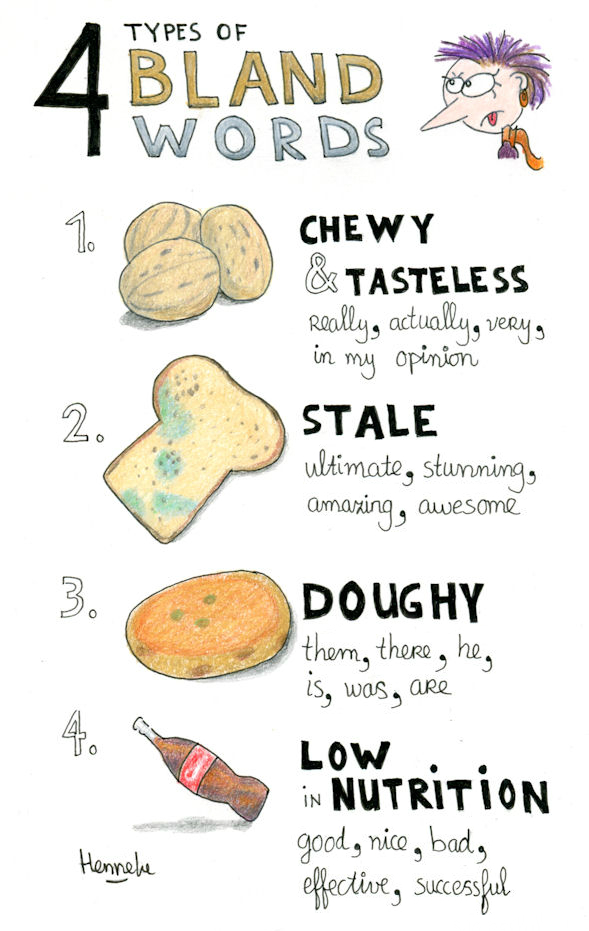 4 TYPES OF
BLAND
WORDS
1.
CHEWY
& TASTELESS
really, actually, very,
in my opinion
2.
STALE
ultimate, stunning,
amazing, awesome
3.
DOUGHY
them, there, he,
is, was, are
4.
LOW
IN NUTRITION
good, nice, bad,
effective, successful
Henneke